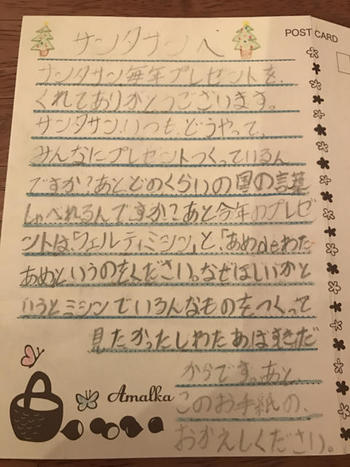 POST CARD
サンタサンへ
サンタサン毎年プレゼントを、
くれてありがとうございます。
サンタサン！いつも、どうやって、
みんなにプレゼントつくっているん
ですか？あとどのくらいの国の言葉
しゃべれるんですか？あと今年のプレゼ
ントは「フェルティミシン」と「あめdeわた
あめというのをください。なぜほしいかと
いうとミシンでいろんなものをつくって
見たかったしわたあめすきだ
からです。あと、
このお手紙の、
おかえしください。
Amalka